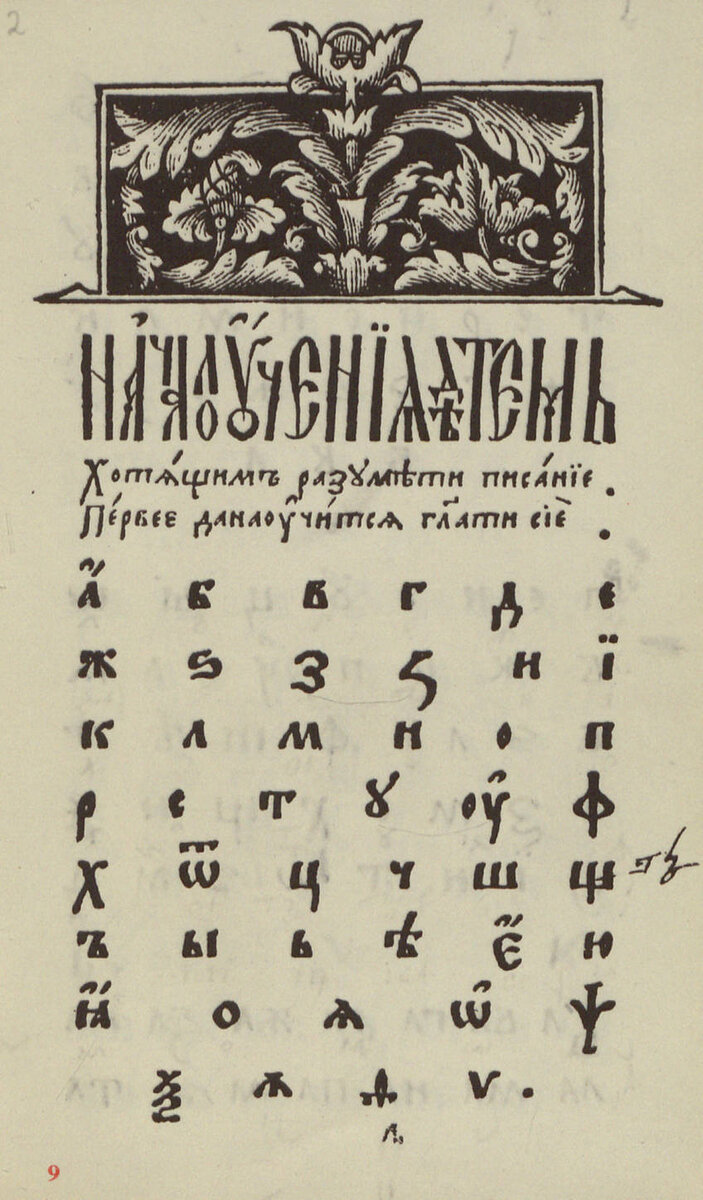 2
НАЧАЛО ОУЧЕНЇѦ ДѢТЕМЪ
Хотѧ́щимъ разꙋмѣти писа́нїе .
Пе́рвее данаоу҆чи́тсѧ гл҃ати сїѐ .
А҆́ б в г д е
ж ѕ з ꙁ и ї
к л м н о п
р с т ꙋ оу҆ ф
х ѿ ц ч ш щ
ъ ы ь ѣ є҆́ ю
ꙗ҆́ о ѧ ѡ҆ ѱ
ѯ ѧ ѳ ѵ .
9